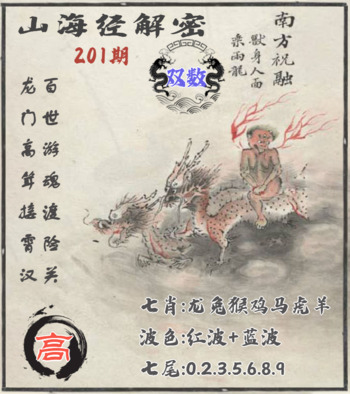 山海经解密
201期
双数
南方祝融
獸身人面
乘兩龍
百世游魂渡险关
龙门高耸接霄汉
高
七肖:龙兔猴鸡马虎羊
波色:红波+蓝波
七尾:0.2.3.5.6.8.9